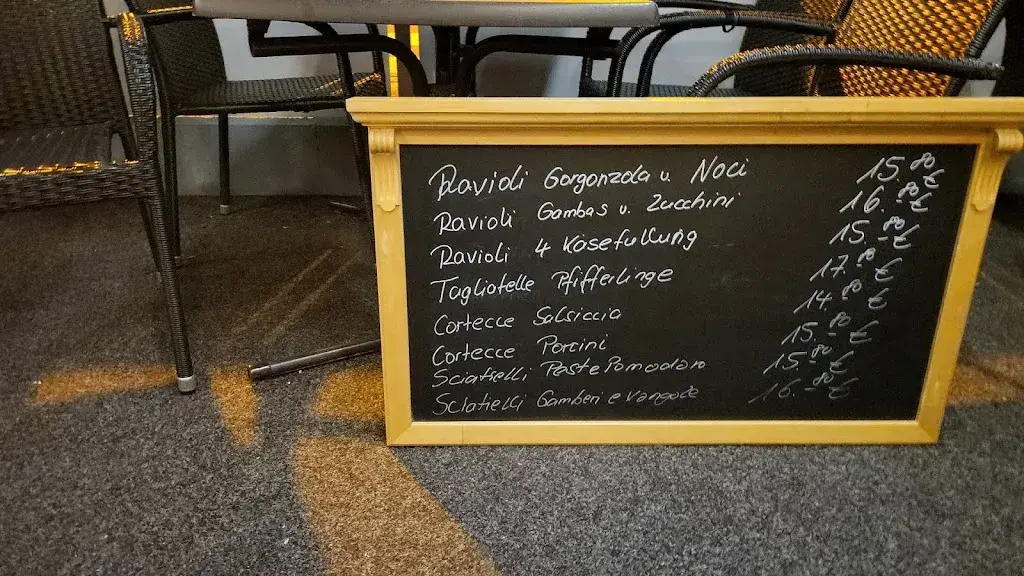 Ravioli Gorgonzola u. Noci 15.80 €
Ravioli Gambas u. Zucchini 16.80 €
Ravioli 4 Käsefüllung 15.80 €
Tagliatelle Pfifferlinge 17.80 €
Cortecce Salsiccia 14.80 €
Cortecce Porcini 15.80 €
Sciatielli Paste Pomodoro 15.80 €
Sclatielli Gamberi e Vongole 16.80 €